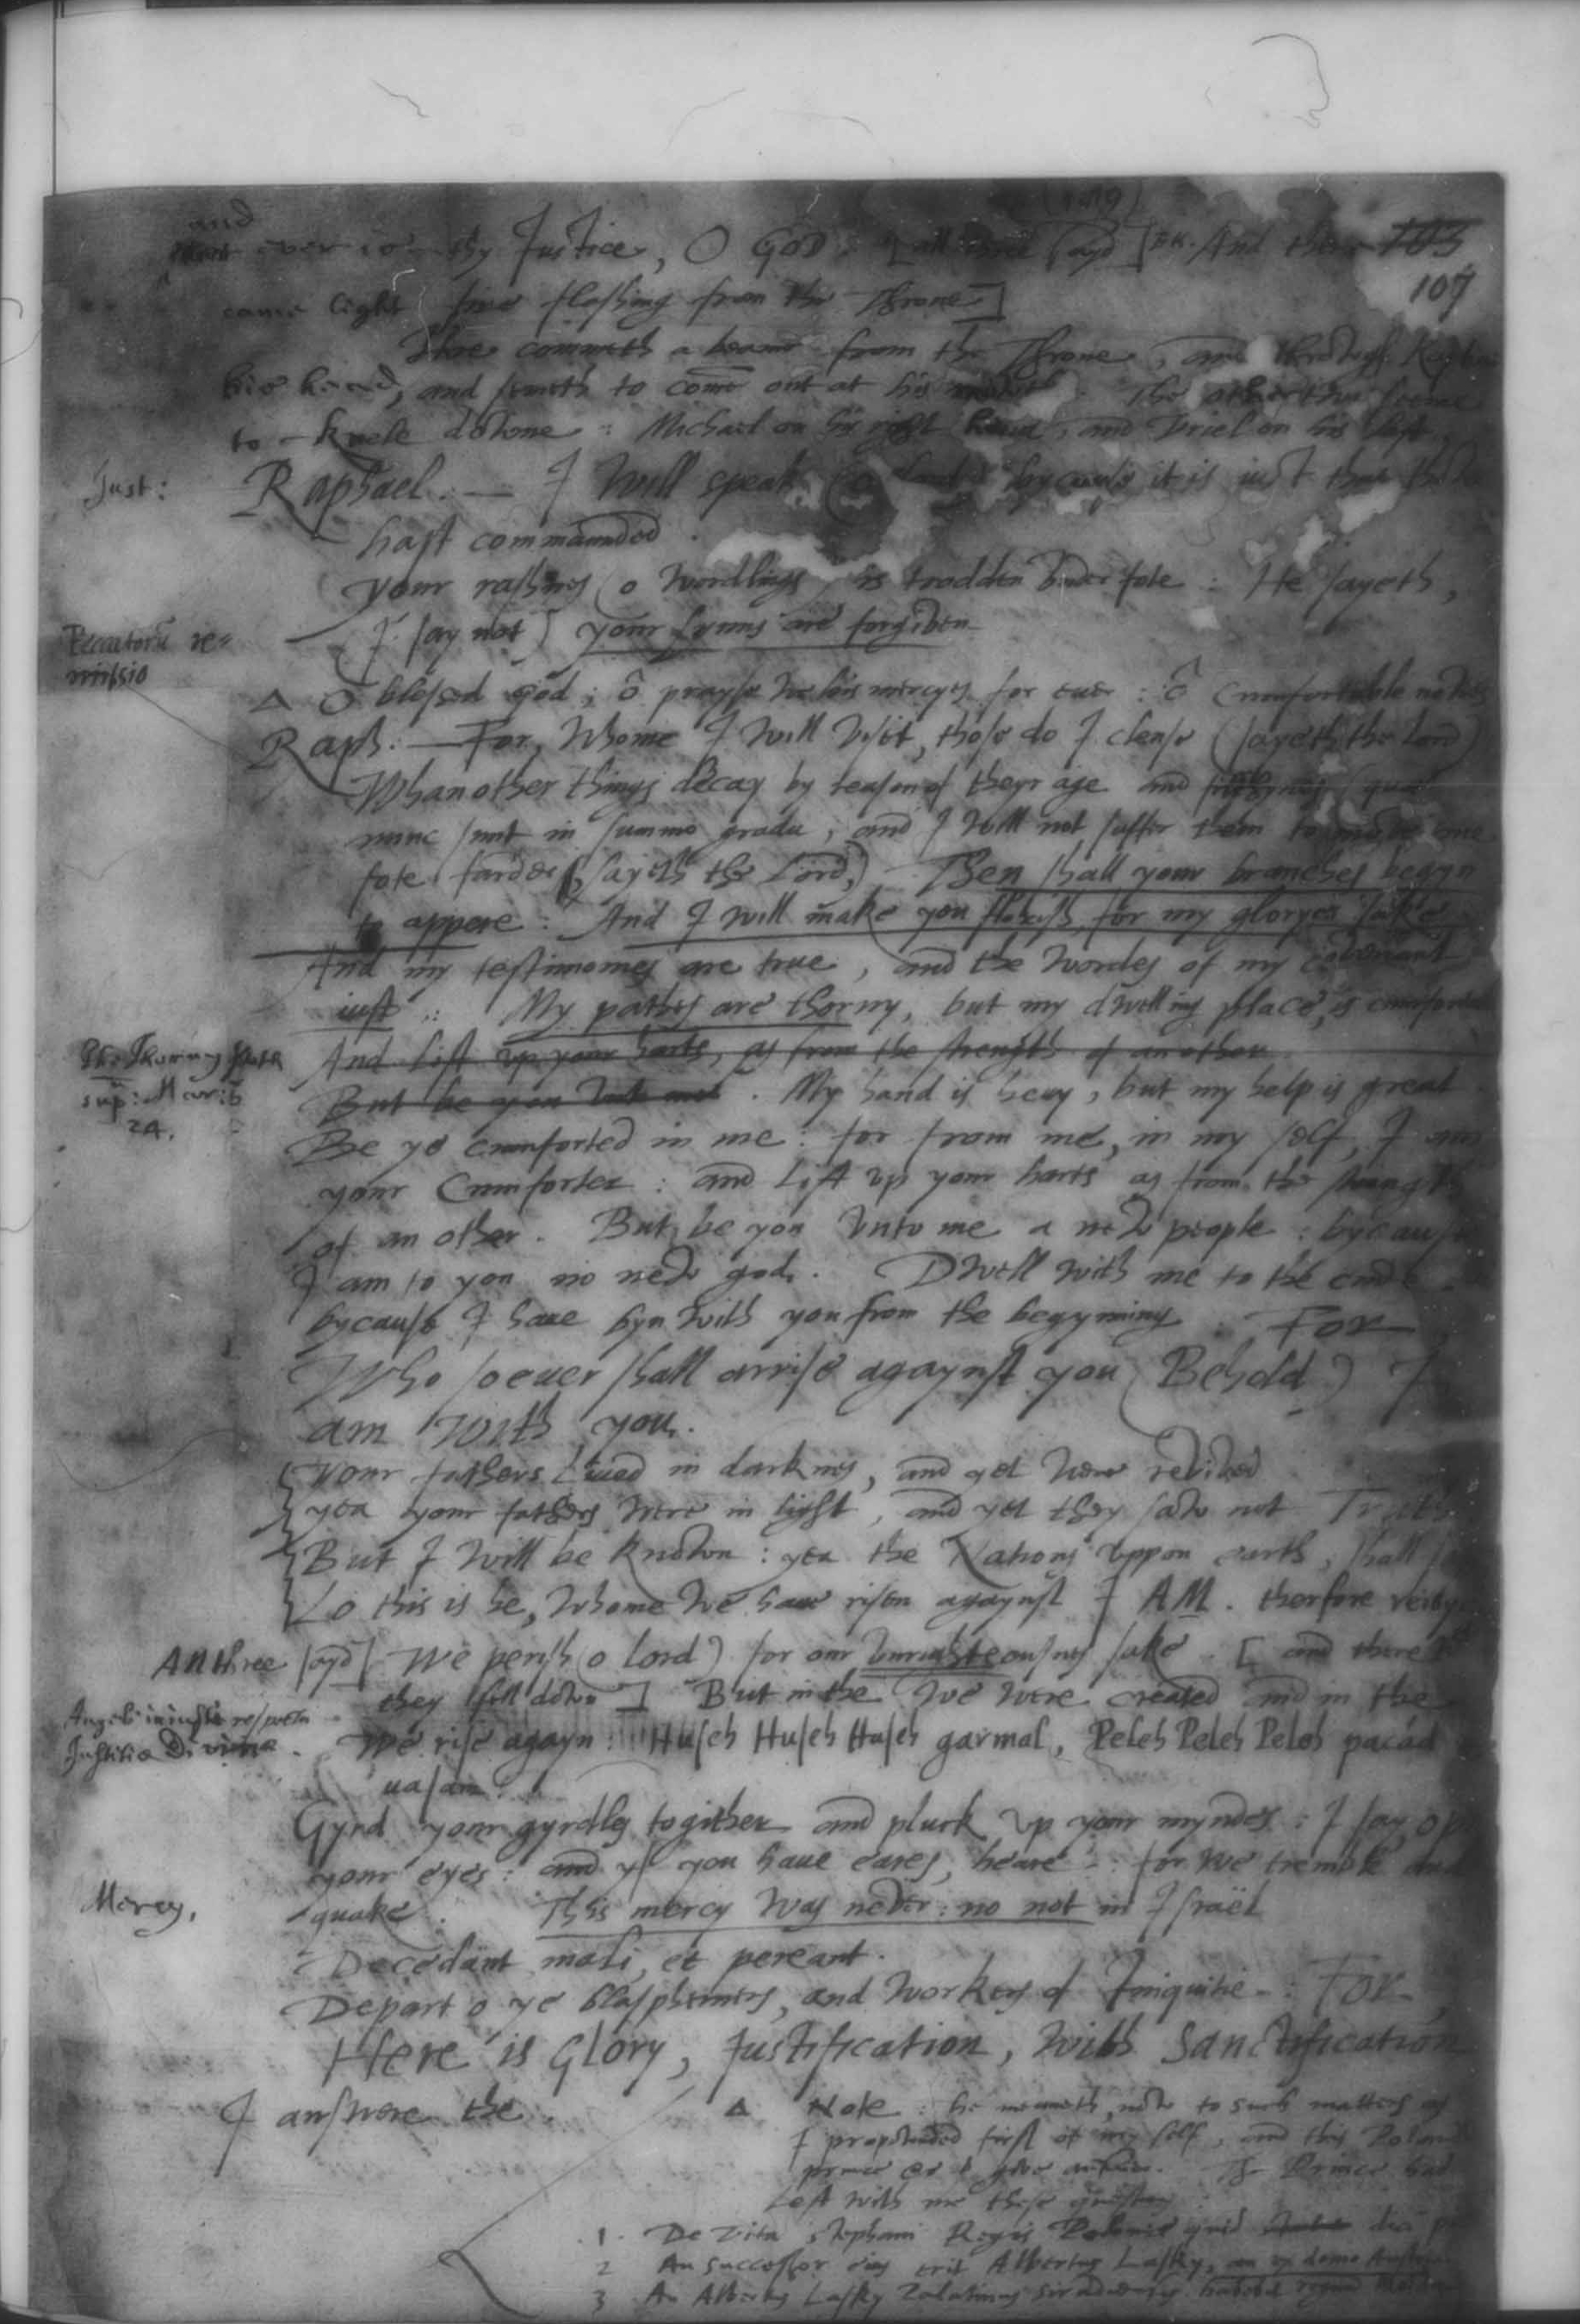 and
ever thy Justice, O GOD. [all three sayd] EK. And there 103
107
came light fire flashing from the Throne]
There commeth a beame from the Throne, and through
his head, and semeth to come out at his The other two seeme
to knele downe: Michael on his right hand, and Uriel on his left.
Just:
Raphael. — I will speak bycause it is just that thow
hast commaunded.
Your rashnes (o wordlings) is trodden under fote: He sayeth,
(I say not) your synns are forgiven
Peccatorũ re=
missio
Δ O blessed god; ô prayse we his mercyes for ever: ô Cumfortable newes
Raph. — For, Whome I will visit, those do I clense (sayeth the Lord)
Whan other things decay by reason of theyr age and filthynes (quæ
nunc sunt in summo gradu; and I will not suffer them to move one
fote farder, (sayeth the Lord,) Then shall your branches begyn
to appere: And I will make you florish, for my gloryes sake
And my testimonies are true, and the wordes of my covenant
iust: My pathes are thorny, but my dwelling place, is cumfortable
The Thorny Path
sup: Martij
24.
And lift up your harts, as from the strength of an other
But be you unto me. My hand is hevy, but my help is great.
Be ye cumforted in me: for from me, in my self, I am
your Cumforter: and Lift up your harts as from the strength
of an other. But be you unto me a new people: bycause
I am to you no new god. Dwell with me to the ende
bycause I have byn with you from the begynning: For
Who soever shall arrise agaynst you (Behold) I
am with you.
Your fathers Lived in darknes, and yet were revived
yea your fathers were in light, and yet they saw not Truth
But I will be knowne: yea the Nations uppon earth, shall say
Lo this is he, Whome we have risen agaynst I AM. therfore reioyse
All three sayd] We perish (o Lord) for our unrighteousnes sake. [and there
they fell down] But in the we were created and in the
Angeli iniusti respectu
Justitiæ Divinæ.
We rise agayn: Huseh Huseh Huseh garmal, Peleh Peleh Peleh pacad
uasam.
Gyrd your gyrdles togither and pluck up your myndes: I say, open
your eyes: and yf you have eares, heare: for we tremble and
Mercy.
quake. This mercy was never: no not in Israël
Decedant mali, et pereant.
Depart o ye blasphemers, and workers of Iniquitie: For
Here is Glory, Justification, with Sanctification
I answere the.
Δ Note: he meaneth, now to such matters as
I propounded first of my self, and this Polonish
prince The Prince had
Left with me these questions:
1. De Vita Stephani Regis Poloniæ quid dici
2 An successor eius erit Albertus Lasky, an ex domo Austriaca
3 An Albertus Lasky Palatinus Siradiensis habebit regnum